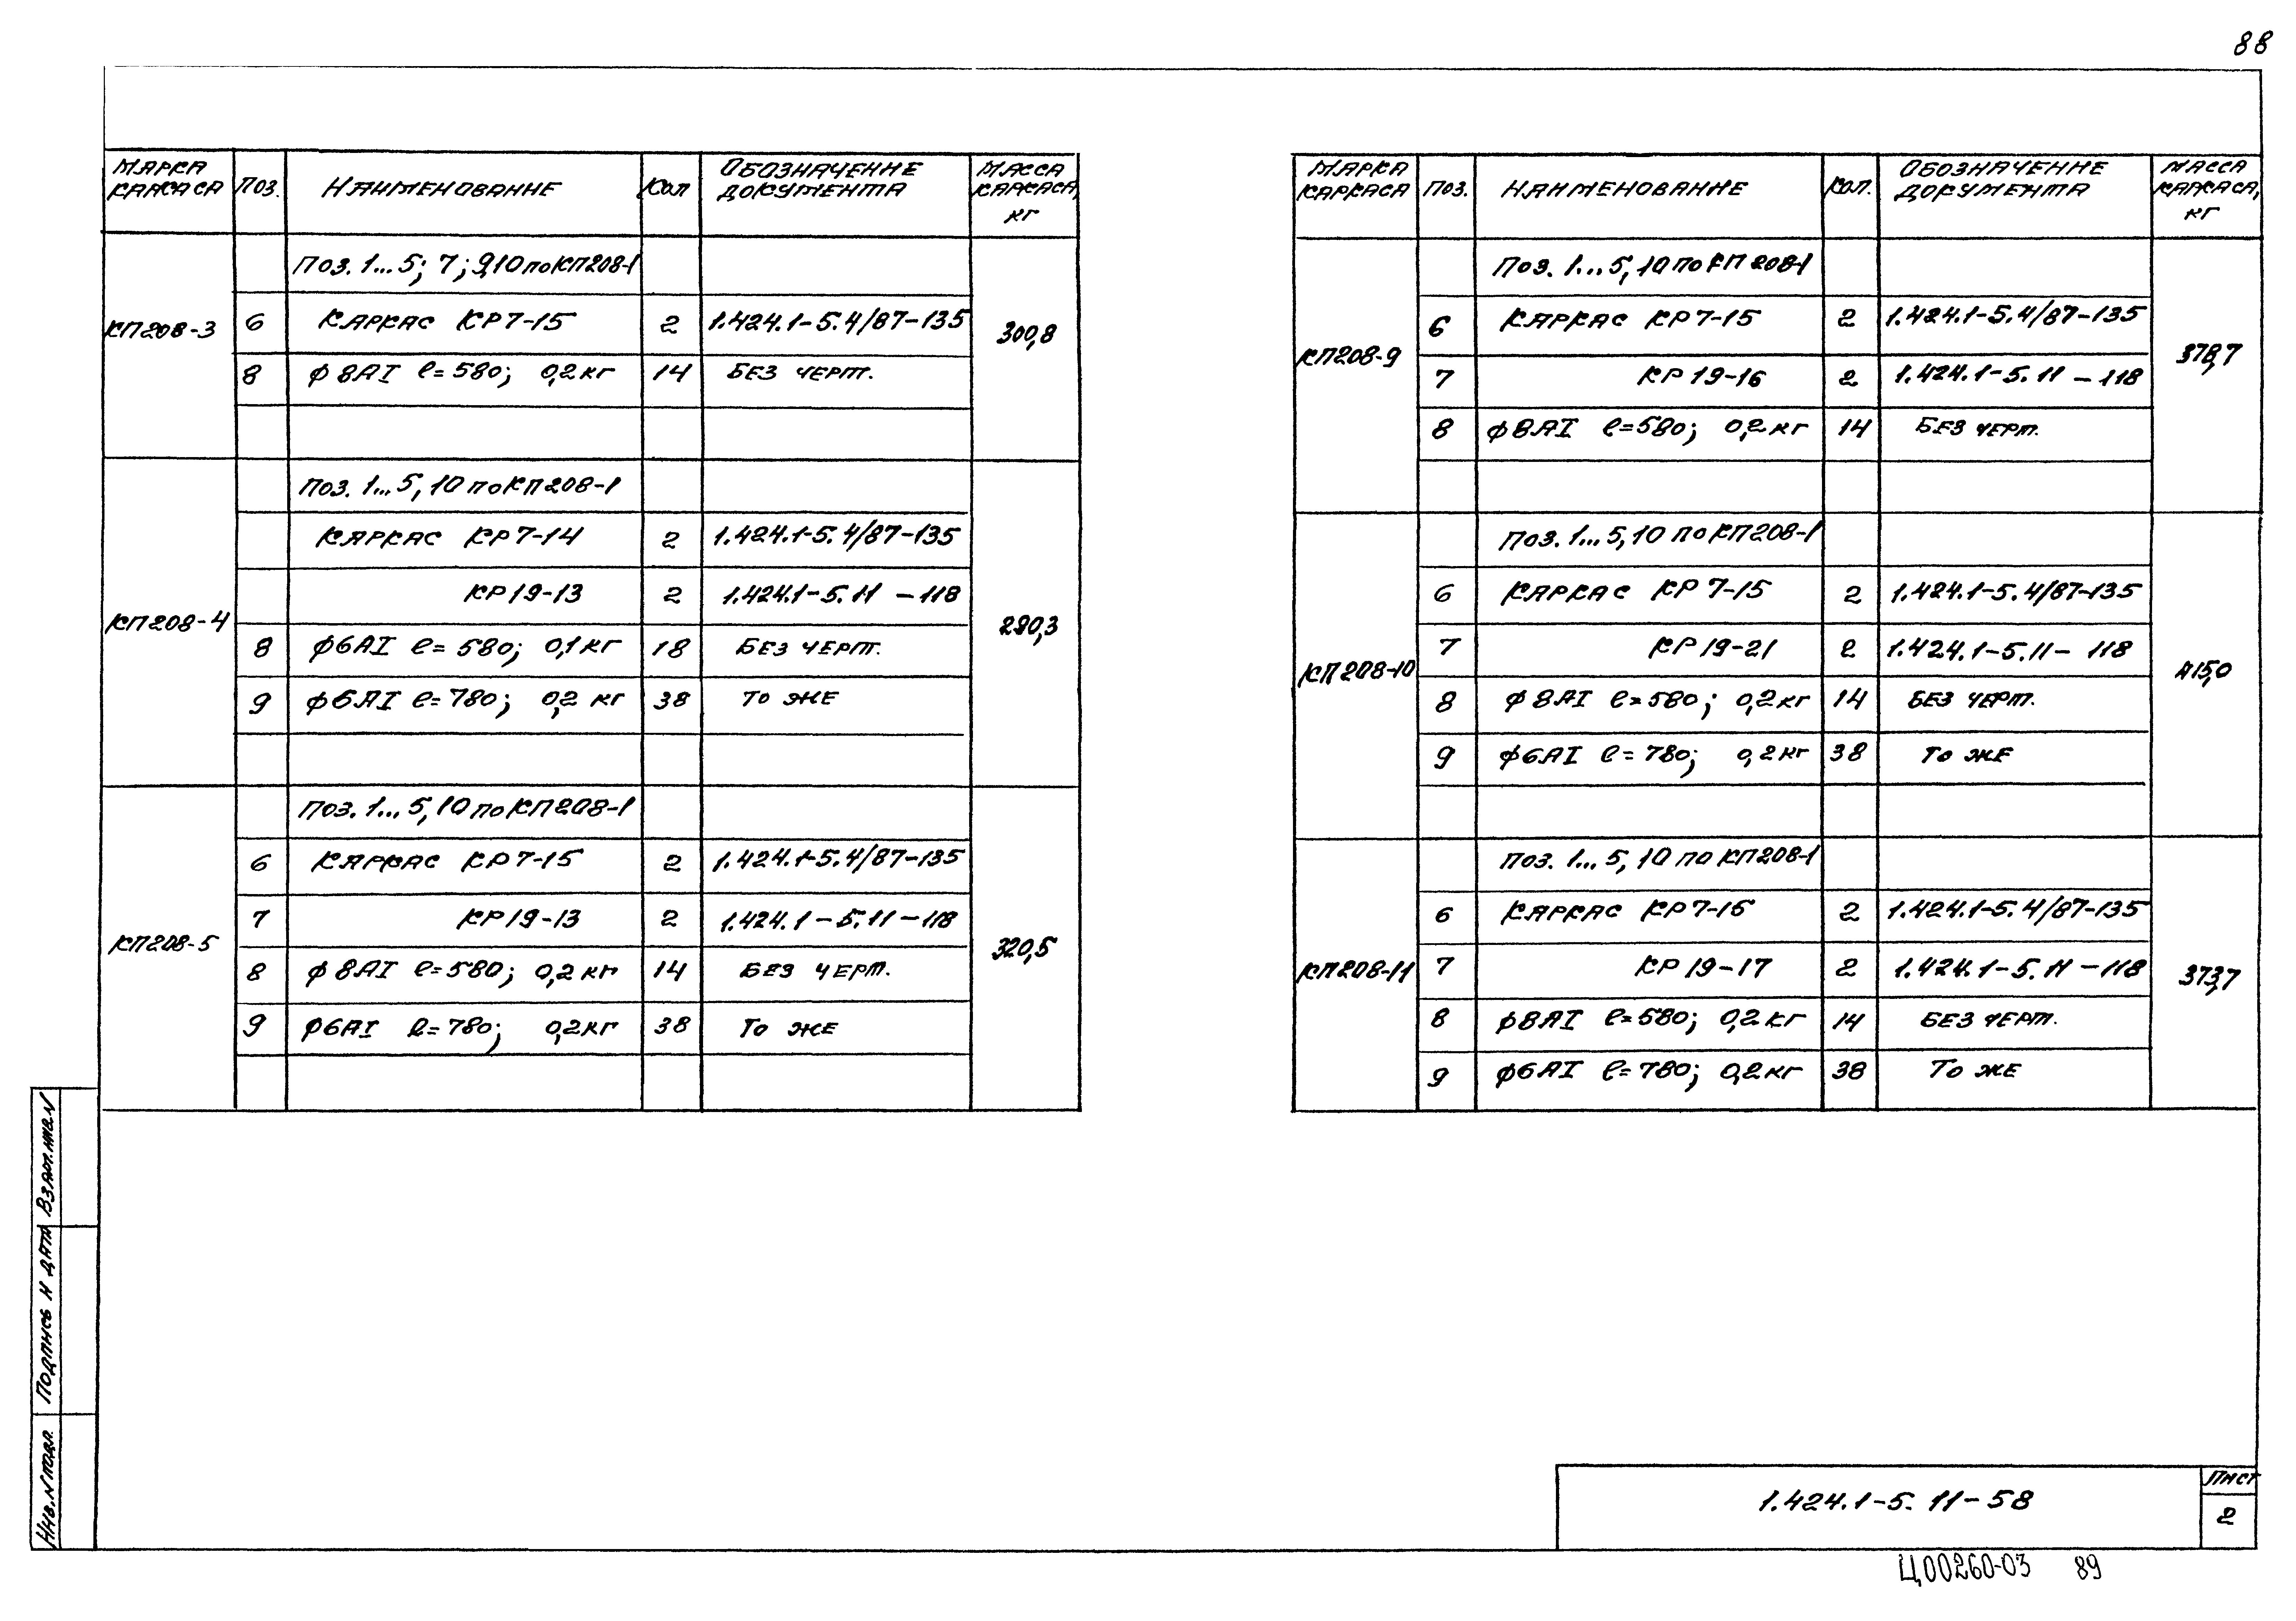 88
МАРКА КАРКАСА ПОЗ. НАИМЕНОВАНИЕ КОЛ ОБОЗНАЧЕНИЕ ДОКУМЕНТА МАССА КАРКАСА, КГ
КП208-3 300,8
ПОЗ. 1...5; 7; 9,10 по КП208-1
6 КАРКАС КР7-15 2 1.424.1-5.4/87-135
8 ϕ8АI ℓ=580; 0,2кг 14 БЕЗ ЧЕРТ.
КП208-4 290,3
ПОЗ. 1...5, 10 по КП208-1
КАРКАС КР7-14 2 1.424.1-5.4/87-135
КР19-13 2 1.424.1-5.11-118
8 ϕ6АI ℓ=580; 0,1кг 18 БЕЗ ЧЕРТ.
9 ϕ6АI ℓ=780; 0,2 кг 38 ТО ЖЕ
КП208-5 320,5
ПОЗ. 1...5, 10 по КП208-1
6 КАРКАС КР7-15 2 1.424.1-5.4/87-135
7 КР19-13 2 1.424.1-5.11-118
8 ϕ8АI ℓ=580; 0,2кг 14 БЕЗ ЧЕРТ.
9 ϕ6АI ℓ=780; 0,2кг 38 ТО ЖЕ
МАРКА КАРКАСА ПОЗ. НАИМЕНОВАНИЕ КОЛ. ОБОЗНАЧЕНИЕ ДОКУМЕНТА МАССА КАРКАСА, КГ
КП208-9 378,7
ПОЗ. 1...5, 10 по КП208-1
6 КАРКАС КР7-15 2 1.424.1-5.4/87-135
7 КР19-16 2 1.424.1-5.11-118
8 ϕ8АI ℓ=580; 0,2кг 14 БЕЗ ЧЕРТ.
КП208-10 415,0
ПОЗ. 1...5, 10 по КП208-1
6 КАРКАС КР7-15 2 1.424.1-5.4/87-135
7 КР19-21 2 1.424.1-5.11-118
8 ϕ8АI ℓ=580; 0,2кг 14 БЕЗ ЧЕРТ.
9 ϕ6АI ℓ=780; 0,2кг 38 ТО ЖЕ
КП208-11 373,7
ПОЗ. 1...5, 10 по КП208-1
6 КАРКАС КР7-15 2 1.424.1-5.4/87-135
7 КР19-17 2 1.424.1-5.11-118
8 ϕ8АI ℓ=580; 0,2кг 14 БЕЗ ЧЕРТ.
9 ϕ6АI ℓ=780; 0,2кг 38 ТО ЖЕ
ИНВ.N ПОДЛ. ПОДПИСЬ И ДАТА ВЗАМ.ИНВ.N
1.424.1-5.11-58
ЛИСТ
2
Ц00260-03 89